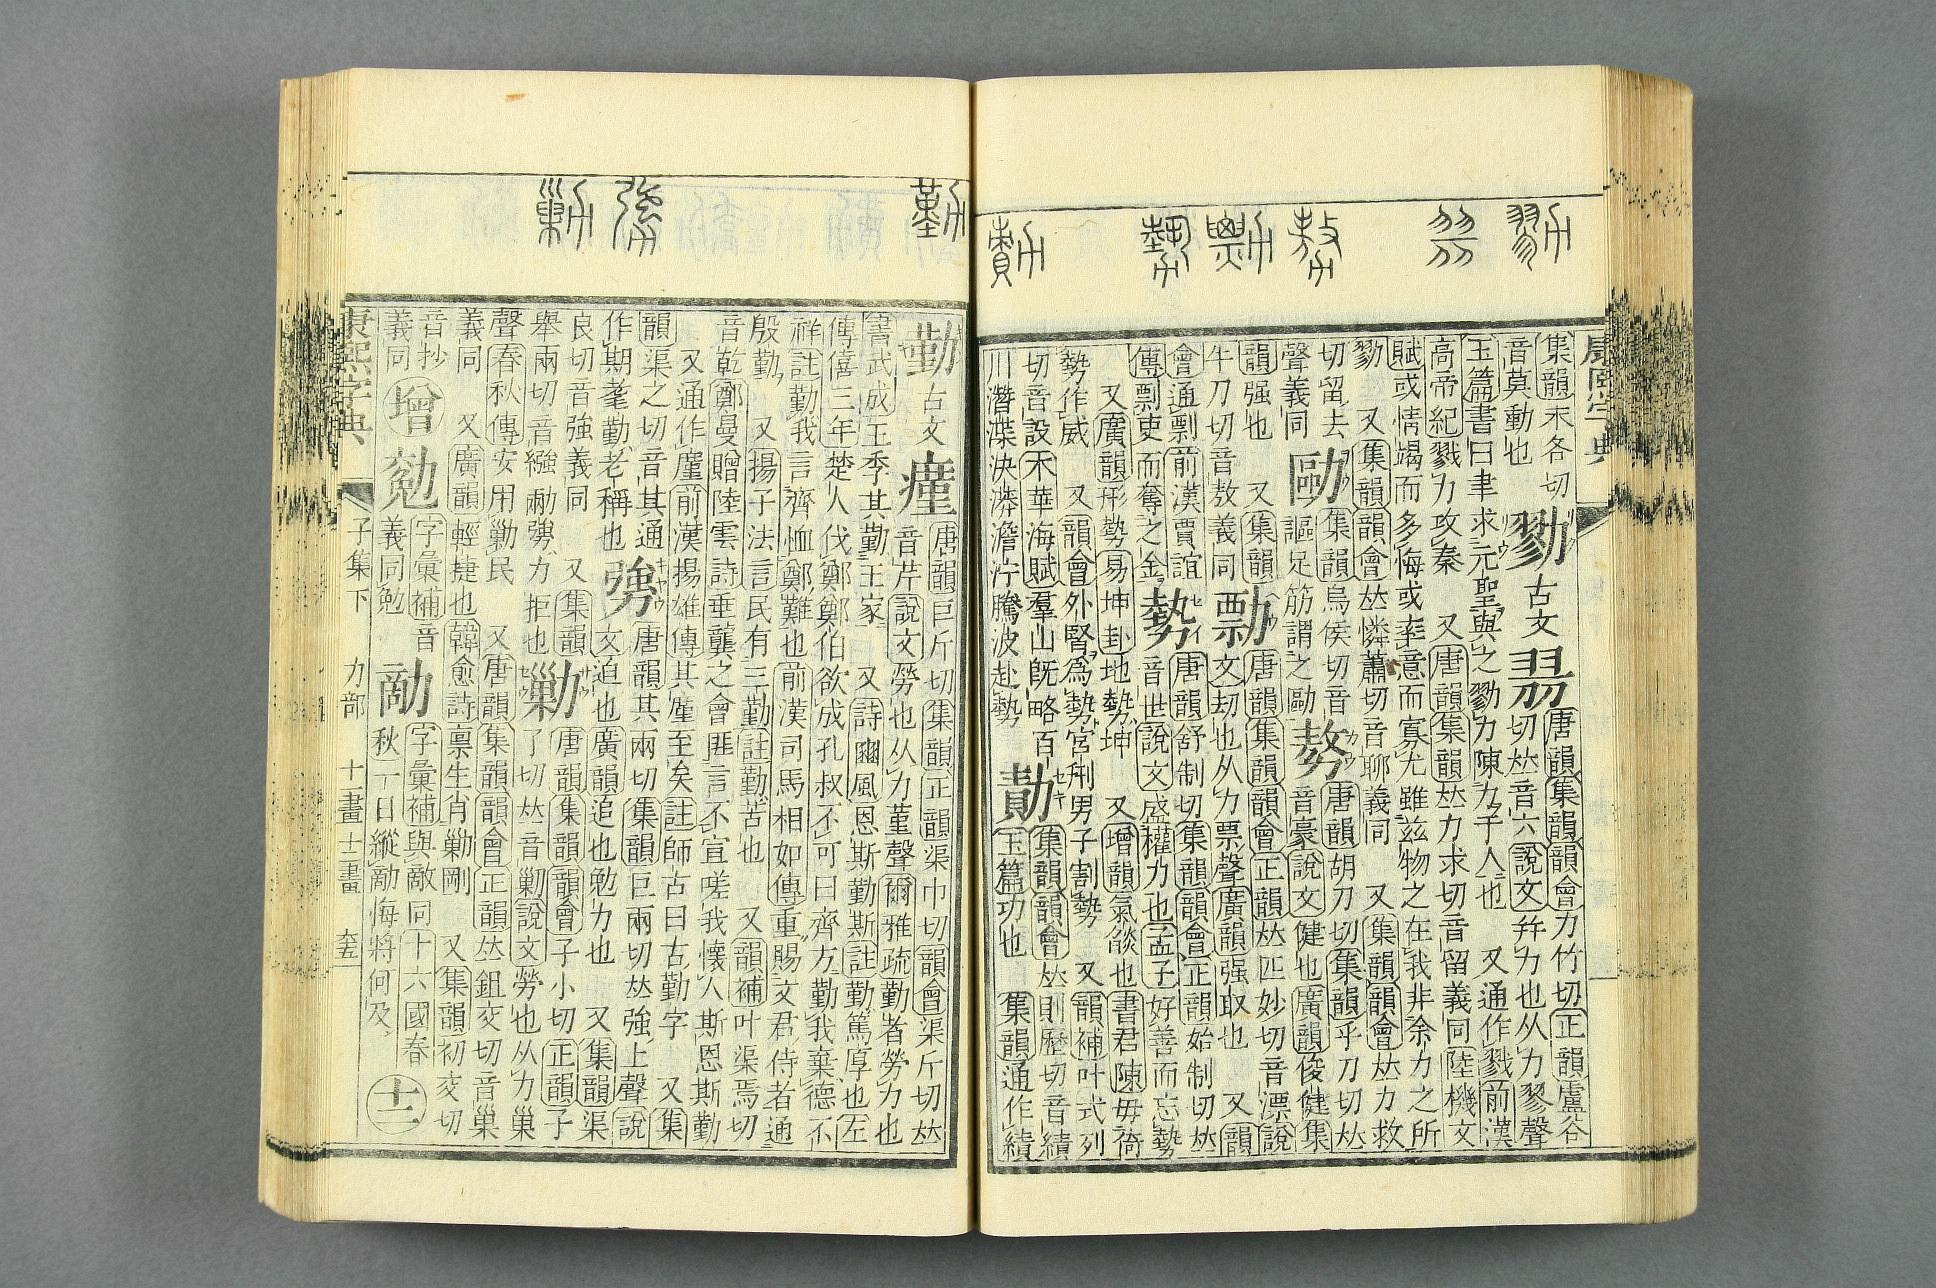 康熙字典
集韻末各切
音莫動也
勠
古文
唐韻集韻韻會力竹切正韻盧谷
切𠀤音六說文幷力也从力翏聲
玉篇書曰聿求元聖與之勠力陳力子人也 又通作戮前漢
高帝紀戮力攻秦 又唐韻集韻𠀤力求切音留義同陸機文
賦或情竭而多悔或率意而寡尤雖兹物之在我非余力之所
勠 又集韻韻會𠀤憐蕭切音聊義同 又集韻韻會𠀤力救
切留去
聲義同
集韻烏侯切音
謳足筋謂之
𠢕
唐韻胡刀切集韻乎刀切𠀤
音豪說文健也廣韻俊健集
韻强也 又集韻
牛刀切音敖義同
勡
唐韻集韻韻會正韻𠀤匹妙切音漂說
文劫也从力票聲廣韻强取也 又韻
會通剽前漢賈誼
傳剽吏而奪之金
勢
唐韻舒制切集韻韻會正韻始制切𠀤
音世說文盛權力也孟子好善而忘勢
又廣韻形勢易坤卦地勢坤 又增韻氣燄也書君陳毋倚
勢作威 又韻會外腎爲勢宮刑男子割勢 又韻補叶式列
切音設木華海賦羣山旣略百
川潛渫泱漭澹泞騰波赴勢
勣
集韻韻會𠀤則歷切音績
玉篇功也 集韻通作績
勤
古文
瘽
唐韻巨斤切集韻正韻渠巾切韻會渠斤切𠀤
音芹說文勞也从力堇聲爾雅疏勤者勞力也
書武成王季其勤王家 又詩豳風恩斯勤斯註勤篤厚也左
傳僖三年楚人伐鄭鄭伯欲成孔叔不可曰齊方勤我棄德不
祥註勤我言齊恤鄭難也前漢司馬相如傳重賜文君侍者通
殷勤 又揚子法言民有三勤註勤苦也 又韻補叶渠焉切
音乾鄭曼贈陸雲詩垂龔之會匪言不宣嗟我懷人斯恩斯勤
又通作廑前漢揚雄傳其廑至矣註師古曰古勤字 又集
韻渠之切音其通
作期耄勤老稱也
勥
唐韻其兩切集韻巨兩切𠀤強上聲說
文迫也廣韻追也勉力也 又集韻渠
良切音強義同 又集韻
舉兩切音繈勴勥力拒也
勦
唐韻集韻韻會子小切正韻子
了切𠀤音剿說文勞也从力巢
聲春秋傳安用勦民 又唐韻集韻韻會正韻𠀤鉏交切音巢
義同 又廣韻輕捷也韓愈詩禀生肖勦剛 又集韻初交切
音抄
義同
增
字彙補音
義同勉
字彙補與敵同十六國春
秋一日縱 悔將何及
十二
康熙字典 子集下 力部 十一畫 十二畫